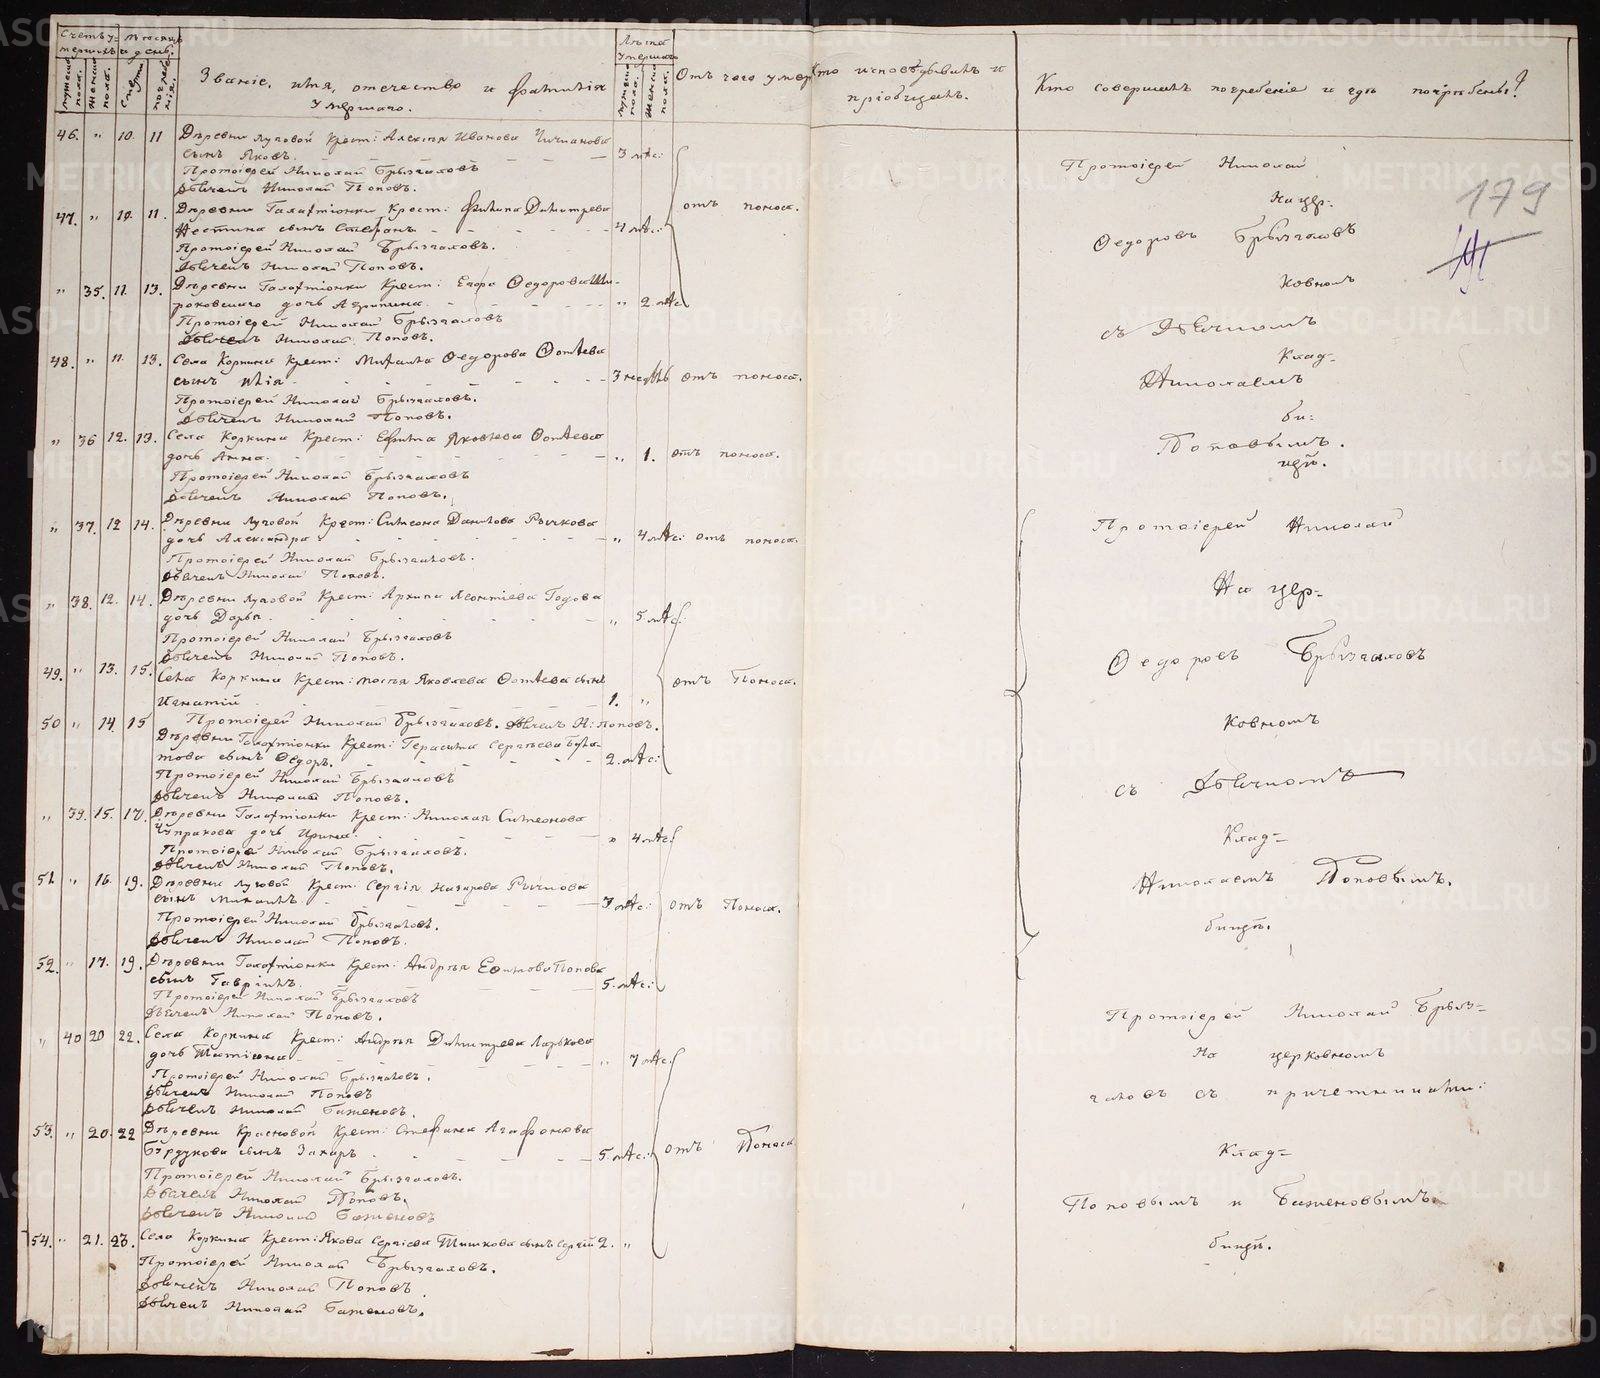 Счетъ у- Мѣсяцъ
мершихъ и день.
Мужеска пола.
Женска пола.
Смерти
погребенія.
Званіе, имя, отечество и фамилія
умершаго.
Лѣта
умершаго
Мужеска пола.
Женска пола.
Отъ чего умеръ
Кто исповѣдывалъ и
пріобщалъ.
Кто совершалъ погребеніе и гдѣ погребены?
179
46. " 10. 11 Деревни Луговой Крест: Алексѣя Иванова
сынъ Яковъ. 3 мѣс:
Протоіерей Николай Брызгаловъ
Дьячекъ Николай Поповъ.
47. " 10. 11. Деревни Галактіонки Крест: Филипа Димитрева
сынъ Стефанъ 4 мѣс:
Протоіерей Николай Брызгаловъ.
Дьячекъ Николай Поповъ.
отъ поноса.
" 35. 11. 13. Деревни Галактіонки Крест: Егора Федорова Ши-
роковскаго дочь Агрипина " 2 мѣс
Протоіерей Николай Брызгаловъ
Дьячекъ Николай Поповъ.
48. " 11. 13. Села Коркина Крест: Михаила Федорова Фотѣева
сынъ Илія 3 нед отъ поноса.
Протоіерей Николай Брызгаловъ.
Дьячекъ Николай Поповъ.
" 36 12. 13. Села Коркина Крест: Ефима Яковлева Фотѣева
дочь Анна. " 1. отъ поноса.
Протоіерей Николай Брызгаловъ
Дьячекъ Николай Поповъ.
" 37. 12 14. Деревни Луговой Крест: Симеона Данилова Рычкова
дочь Александра " 4 мѣс: отъ поноса.
Протоіерей Николай Брызгаловъ.
Дьячекъ Николай Поповъ.
" 38. 12. 14. Деревни Луговой Крест: Архипа Леонтіева Годова
дочь Дарья " 5 мѣс:
Протоіерей Николай Брызгаловъ
Дьячекъ Николай Поповъ.
49. " 13. 15. Села Коркина Крест: Яковлева Фотѣева сынъ
Игнатій 1. "
отъ Поноса.
Протоіерей Николай Брызгаловъ. Дьячекъ Н: Поповъ.
50 " 14. 15 Деревни Галактіонки Крест: Герасима Сергѣева
сынъ Федоръ. 2. мѣс:
Протоіерей Николай Брызгаловъ
Дьячекъ Николай Поповъ.
" 39. 15. 17. Деревни Галактіонки Крест: Николая Симеонова
Чупракова дочь Ирина. " 4 мѣс:
Протоіерей Николай Брызгаловъ.
Дьячекъ Николай Поповъ.
51. " 16. 19. Деревни Луговой Крест: Сергія Назарова Рычкова
сынъ Михаилъ. 3 мѣс: отъ Поноса.
Протоіерей Николай Брызгаловъ.
Дьячекъ Николай Поповъ.
52. " 17. 19. Деревни Галактіонки Крест: Андрѣя Ефимова Попова
сынъ Гавріилъ. 5. мѣс:
Протоіерей Николай Брызгаловъ
Дьячекъ Николай Поповъ.
" 40 20 22. Села Коркина Крест: Андрѣя Димитрева Ларькова
дочь Татіяна " 7 мѣс:
Протоіерей Николай Брызгаловъ.
Дьячекъ Николай Поповъ
Дьячекъ Николай Баженовъ.
53. " 20. 22 Деревни Красновой Крест: Стефана Агафонова
Бурдукова сынъ Захаръ 5. мѣс: отъ Поноса
Протоіерей Николай Брызгаловъ.
Дьячекъ Николай Поповъ.
Дьячекъ Николай Баженовъ
54. " 21. 23. Села Коркина Крест: Якова Сергіева Тишкова сынъ Сергій 2. "
Протоіерей Николай Брызгаловъ.
Дьячекъ Николай Поповъ
Дьячекъ Николай Баженовъ.
Протоіерей Николай
На цер-
Федоровъ Брызгаловъ
ковномъ
съ Дьячкомъ
клад-
Николаемъ
би-
Поповымъ.
щѣ.
Протоіерей Николай
На цер-
Федоровъ Брызгаловъ
ковномъ
съ Дьячкомъ
клад-
Николаемъ Поповымъ.
бищѣ.
Протоіерей Николай Брыз-
на церковномъ
галовъ съ причетниками:
клад-
Поповымъ и Баженовымъ.
бищѣ.
METRIKI.GASO-URAL.RU